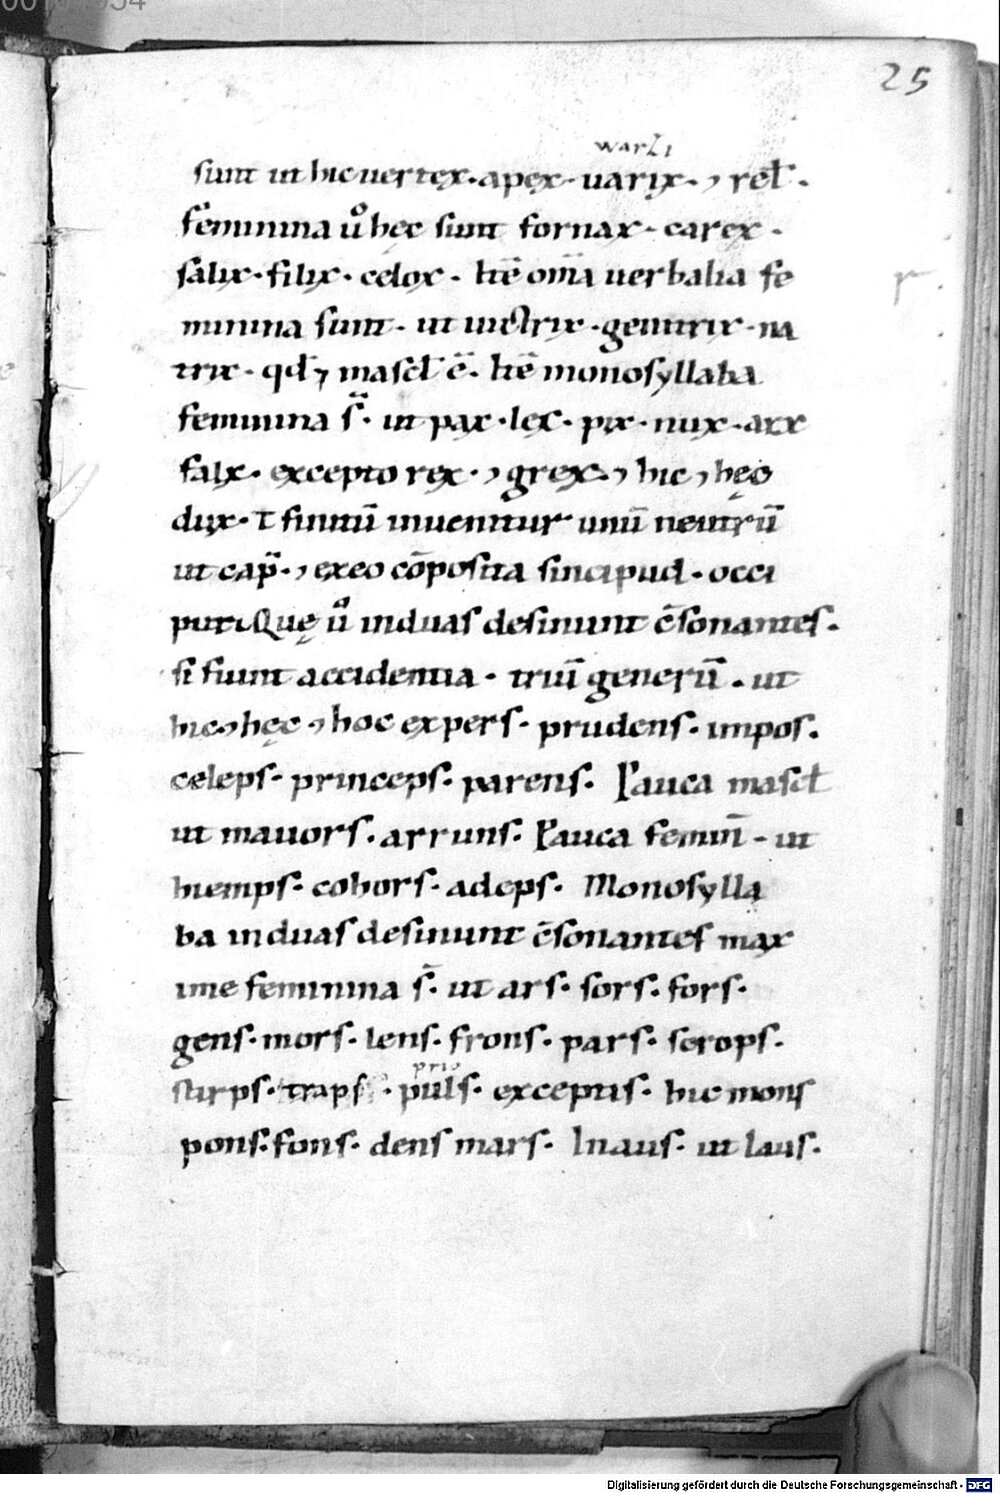 25
warzi
sunt ut hic uertex. apex. uarix. ⁊ rel̅.
Feminina ů hęc sunt fornax. carex.
salix. filix. celox. Itē om̅a uerbalia fe
minina sunt. ut uictrix. genitrix. na
trix. qd̅ ⁊ mascł ē. Itē monosyllaba
feminina s̅. ut pax. lex. pix. nux. arx
falx. excepto rex. ⁊ grex. ⁊ hic ⁊ hęc
dux. T finitū inuenitur unū neutrū
ut cap̅. ⁊ ex eo cōposita sincipud. occi
put. Quę ů in duas desinunt c̅sonantes.
si fiunt accidentia. triū generū. ut
hic ⁊ hęc ⁊ hoc expers. prudens. impos.
celeps. princeps. parens. Pauca mascł
ut mauors. arruns. Pauca femin̅. ut
hiemps. cohors. adeps. Monosylla
ba in duas desinunt c̅sonantes max
ime feminina s̅. ut ars. sors. fors.
gens. mors. lens. frons. pars. scrops.
prio
stirps. traps. puls. exceptis. hic mons
pons. fons. dens mars. In aus. ut laus.
Digitalisierung gefördert durch die Deutsche Forschungsgemeinschaft - DFG